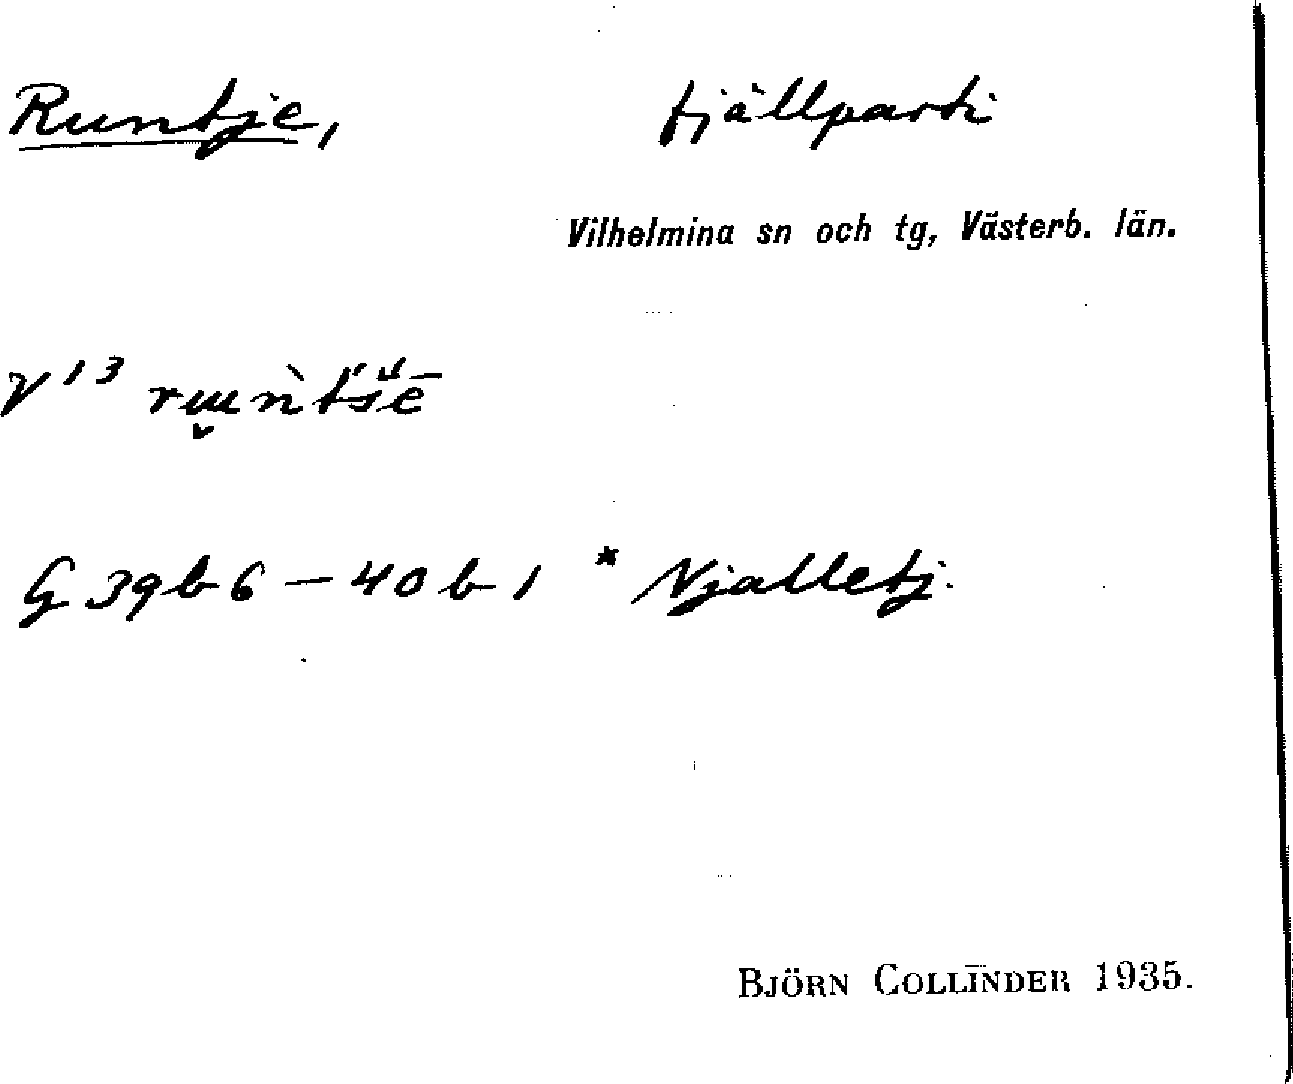 Runtje, fjällparti
Vilhelmina sn och tg, Västerb. län.
V 13
G 39 b 6 – 40 b 1 * Njalletj.
BJÖRN COLLINDER 1935.